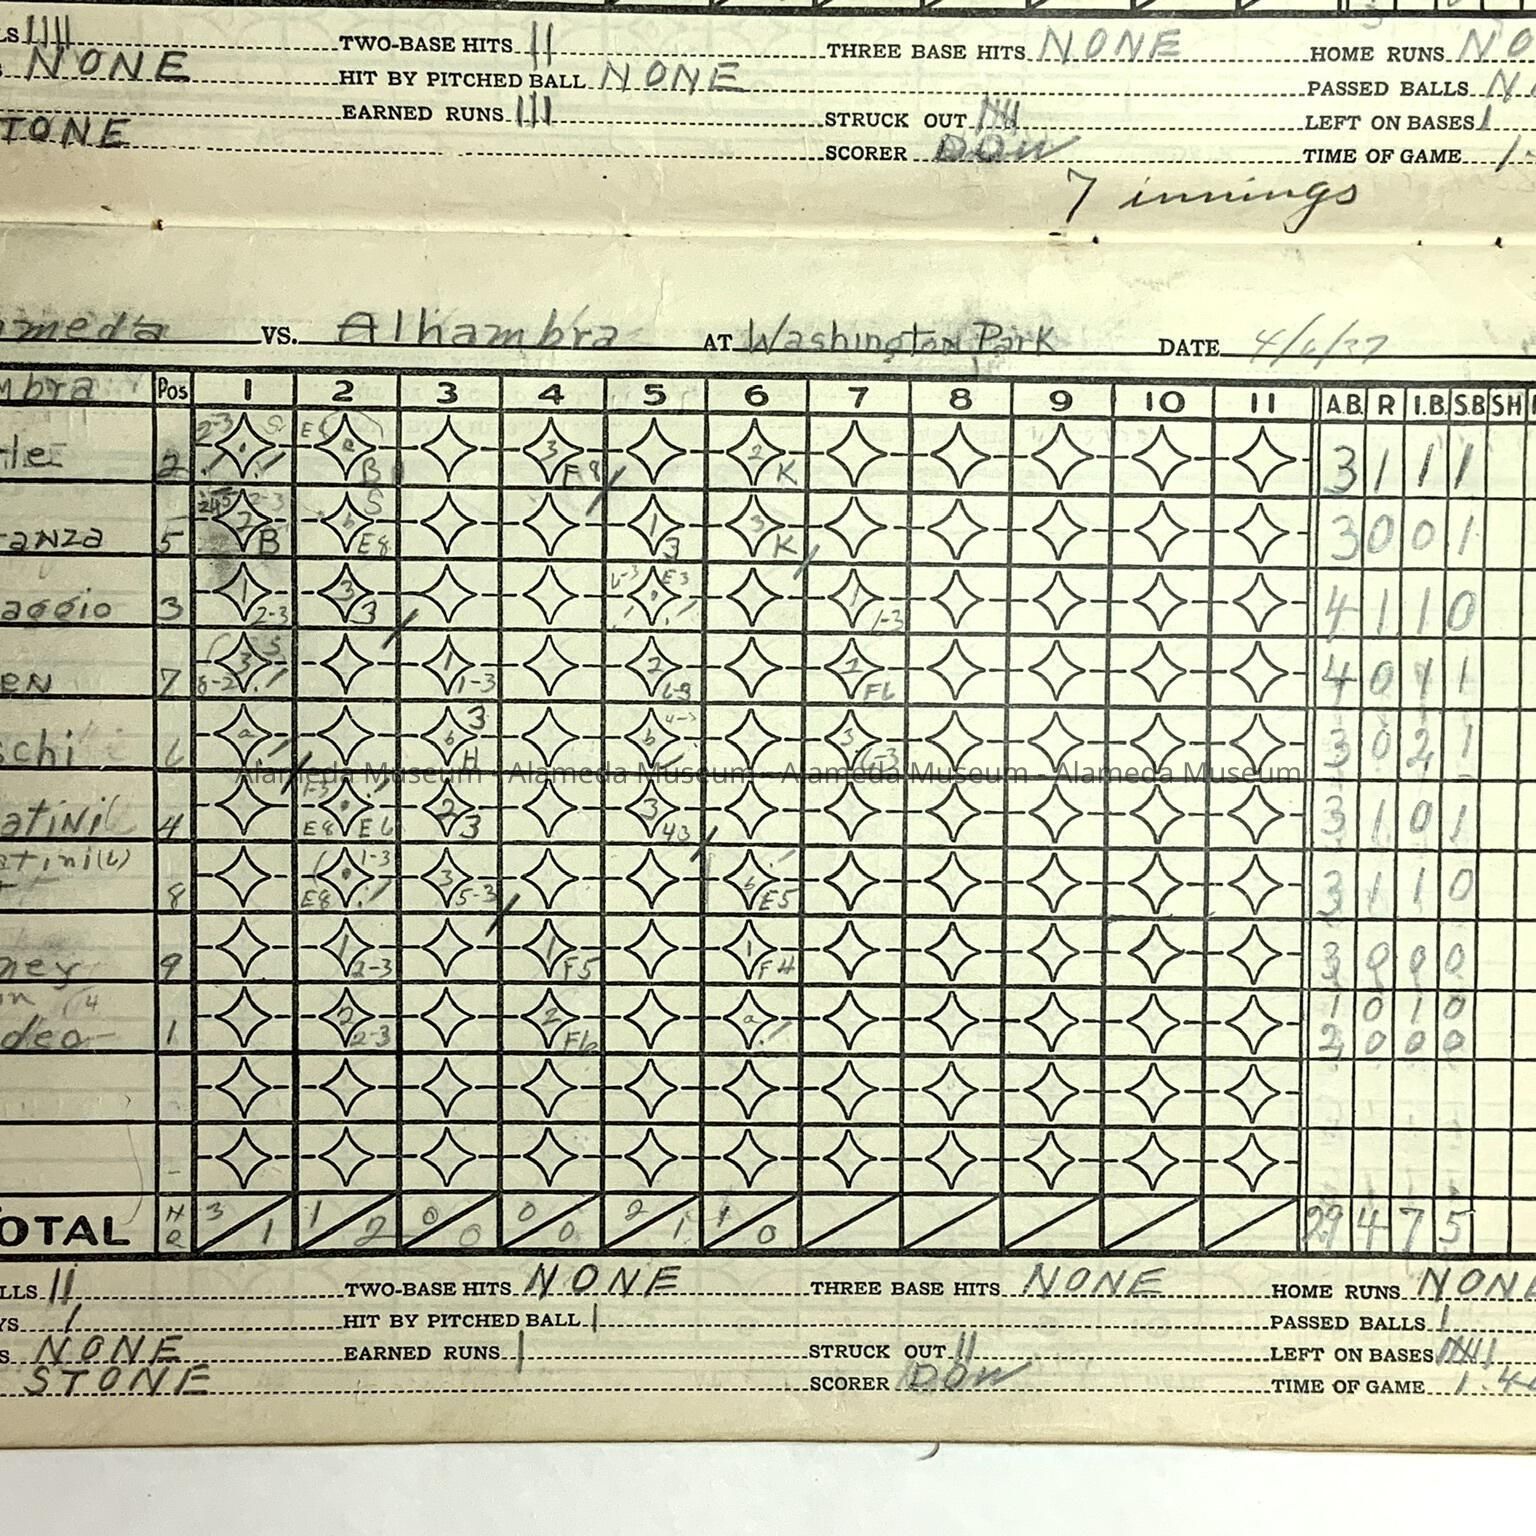 LS IIII TWO-BASE HITS II THREE BASE HITS NONE HOME RUNS NO
NONE HIT BY PITCHED BALL NONE PASSED BALLS N
EARNED RUNS III STRUCK OUT LEFT ON BASES 1
TONE SCORER DOW TIME OF GAME 1-
7 innings
ameda VS. Alhambra AT Washington Park DATE 4/6/37
mbra Pos 1 2 3 4 5 6 7 8 9 10 11 A.B. R I.B. S.B. SH
2 2-3 B 3 F8 2 K 3 1 1 1
anza 5 2-3 2 B S b E8 1 3 3 K 3 0 0 1
aggio 3 1 2-3 3 3 6-3 E3 1 1-3 4 1 1 0
EN 7 3 S 8-2 1 1-3 2 6-3 2 F6 4 0 1 1
schi 6 a 3 b H b 4-3 3 6-3 3 0 2 1
Alameda Museum - Alameda Museum - Alameda Museum - Alameda Museum
atini 4 E8 E6 2 3 3 43 3 1 0 1
atini(L)
8 1-3 E8 3 5-3 b E5 3 1 1 0
ney 9 1 2-3 1 F5 1 F4 3 0 0 0
1 0 1 0
deo 1 2 2-3 2 F6 a 2 0 0 0
OTAL H R 3/1 1/2 0/0 0/0 2/1 1/0 29 4 7 5
LLS II TWO-BASE HITS NONE THREE BASE HITS NONE HOME RUNS NONE
YS 1 HIT BY PITCHED BALL 1 PASSED BALLS 1
S NONE EARNED RUNS 1 STRUCK OUT II LEFT ON BASES
STONE SCORER DOW TIME OF GAME 1.4